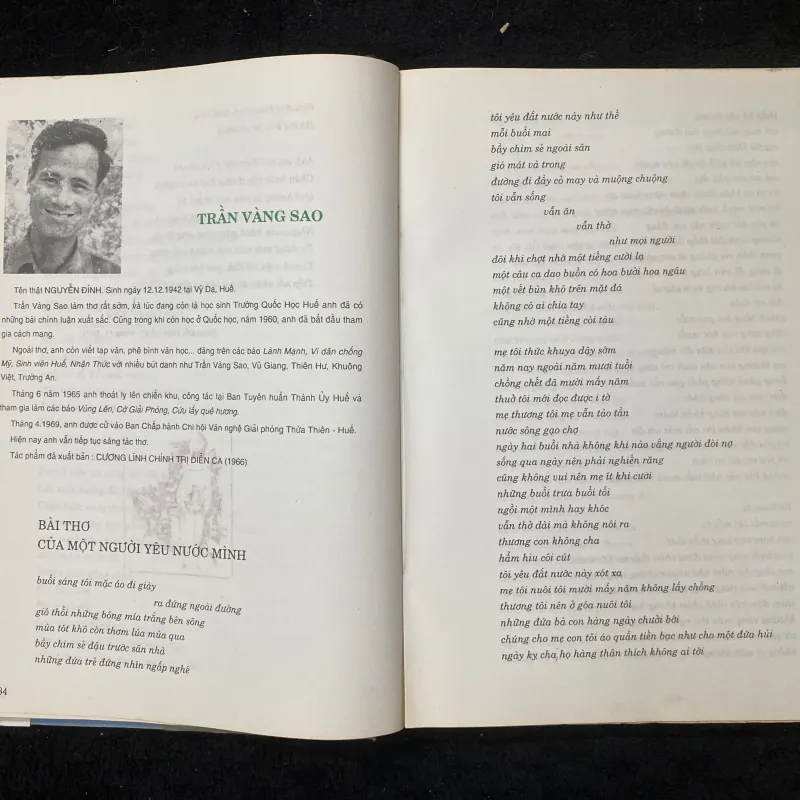 TRẦN VÀNG SAO
Tên thật NGUYỄN ĐÍNH. Sinh ngày 12.12.1942 tại Vỹ Dạ, Huế.
Trần Vàng Sao làm thơ rất sớm, và lúc đang còn là học sinh Trường Quốc Học Huế anh đã có
những bài chính luận xuất sắc. Cũng trong khi còn học ở Quốc học, năm 1960, anh đã bắt đầu tham
gia cách mạng.
Ngoài thơ, anh còn viết tạp văn, phê bình văn học... đăng trên các báo Lành Mạnh, Vì dân chống
Mỹ, Sinh viên Huế, Nhân Thức với nhiều bút danh như Trần Vàng Sao, Vũ Giang, Thiên Hư, Khuông
Việt, Trường An.
Tháng 6 năm 1965 anh thoát ly lên chiến khu, công tác tại Ban Tuyên huấn Thành Ủy Huế và
tham gia làm các báo Vùng Lên, Cờ Giải Phóng, Cứu lấy quê hương.
Tháng 4.1969, anh được cử vào Ban Chấp hành Chi hội Văn nghệ Giải phóng Thừa Thiên - Huế.
Hiện nay anh vẫn tiếp tục sáng tác thơ.
Tác phẩm đã xuất bản : CƯƠNG LĨNH CHÍNH TRỊ DIỄN CA (1966)
BÀI THƠ
CỦA MỘT NGƯỜI YÊU NƯỚC MÌNH
buổi sáng tôi mặc áo đi giày
ra đứng ngoài đường
gió thổi những bông mía trắng bên sông
mùa tót khô còn thơm lúa mùa qua
bầy chim sẻ đậu trước sân nhà
những đứa trẻ đứng nhìn ngấp nghé
84
tôi yêu đất nước này như thế
mỗi buổi mai
bầy chim sẻ ngoài sân
gió mát và trong
đường đi đầy cỏ may và muộng chuộng
tôi vẫn sống
vẫn ăn
vẫn thở
như mọi người
đôi khi chợt nhớ một tiếng cười lạ
một câu ca dao buồn có hoa bưởi hoa ngâu
một vết bùn khô trên mặt đá
không có ai chia tay
cũng nhớ một tiếng còi tàu
mẹ tôi thức khuya dậy sớm
năm nay ngoài năm mươi tuổi
chồng chết đã mười mấy năm
thuở tôi mới đọc được i tờ
mẹ thương tôi mẹ vẫn tảo tần
nước sông gạo chợ
ngày hai buổi nhà không khi nào vắng người đòi nợ
sống qua ngày nên phải nghiến răng
cũng không vui nên mẹ ít khi cười
những buổi trưa buổi tối
ngồi một mình hay khóc
vẫn thở dài mà không nói ra
thương con không cha
hẩm hiu côi cút
tôi yêu đất nước này xót xa
mẹ tôi nuôi tôi mười mấy năm không lấy chồng
thương tôi nên ở góa nuôi tôi
những đứa bà con hàng ngày chưởi bới
chúng cho mẹ con tôi áo quần tiền bạc như cho một đứa hủi
ngày kỵ cha họ hàng thân thích không ai tới